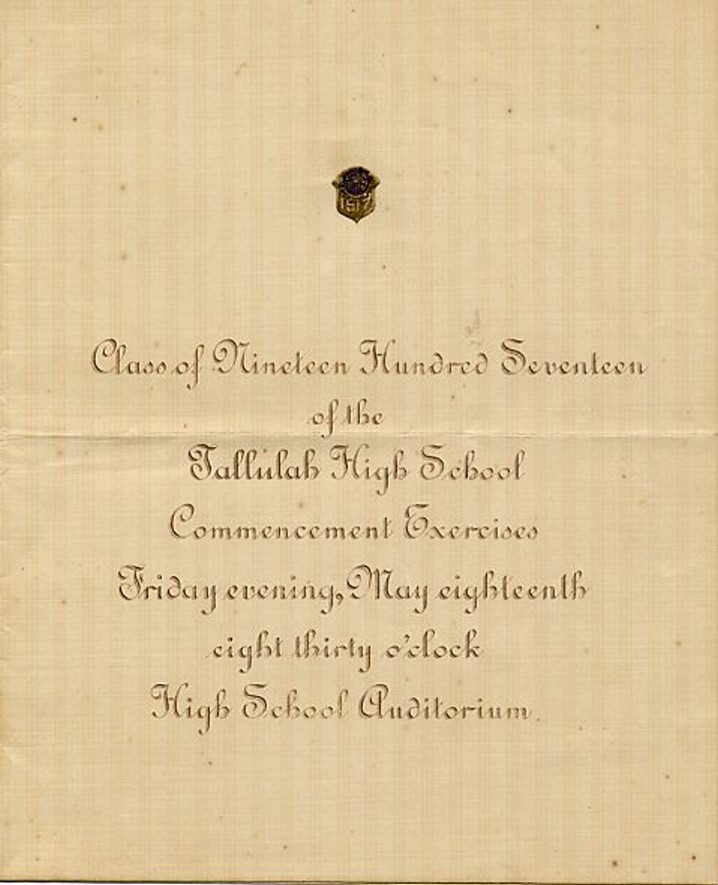 1917
Class of Nineteen Hundred Seventeen
of the
Tallulah High School
Commencement Exercises
Friday evening, May eighteenth
eight thirty o'clock
High School Auditorium.